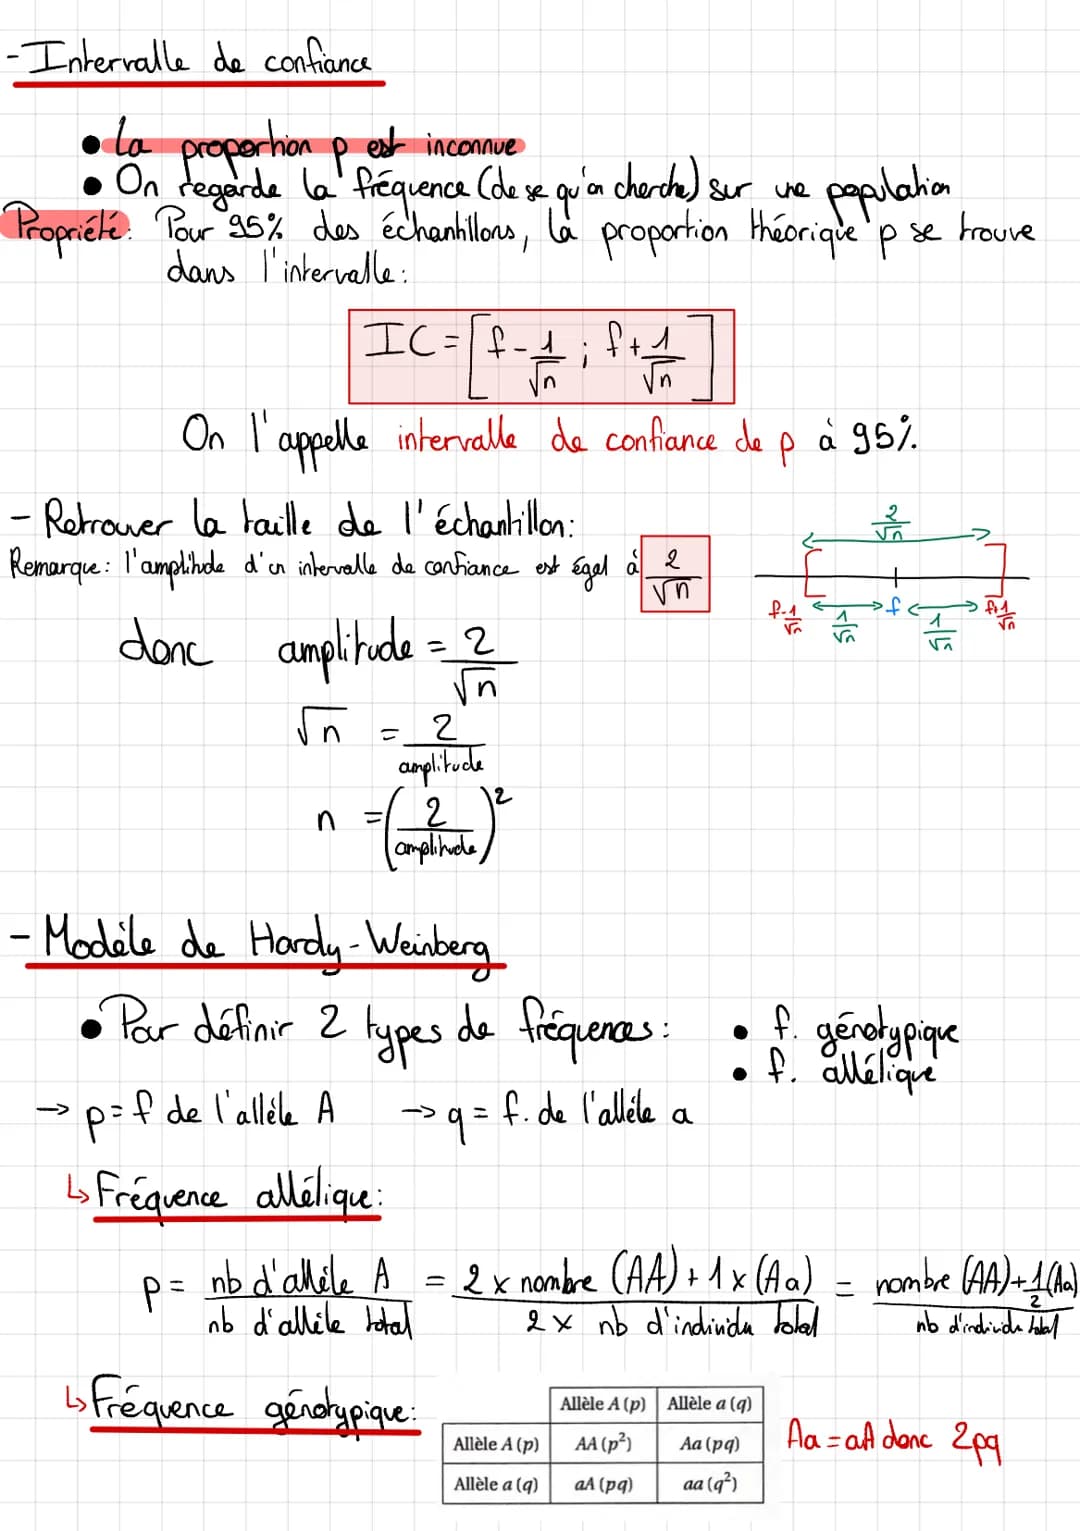 - Intervalle de confiance
• La proportion p est inconnue
• On regarde la fréquence (de se qu'on cherche) sur une population
Propriété: Pour 95% des échantillons, la proportion théorique p se trouve
dans l'intervalle:
IC = [f - 1/√n ; f + 1/√n]
On l'appelle intervalle de confiance de p à 95%.
- Retrouver la taille de l'échantillon:
Remarque: l'amplitude d'un intervalle de confiance est égal à 2/√n
2/√n
f-1/√n 1/√n f 1/√n f+1/√n
donc amplitude = 2/√n
√n = 2/amplitude
n = (2/amplitude)²
- Modèle de Hardy-Weinberg
• Pour définir 2 types de fréquences: • f. génotypique
• f. allélique
→ p = f de l'allèle A → q = f. de l'allèle a
↳ Fréquence allélique:
p = nb d'allèle A / nb d'allèle total = 2 x nombre (AA) + 1 x (Aa) / 2 x nb d'individu total = nombre (AA) + 1/2 (Aa) / nb d'individu total
↳ Fréquence génotypique:
Allèle A (p) Allèle a (q)
Allèle A (p) AA (p²) Aa (pq)
Allèle a (q) aA (pq) aa (q²)
Aa = aA donc 2pq